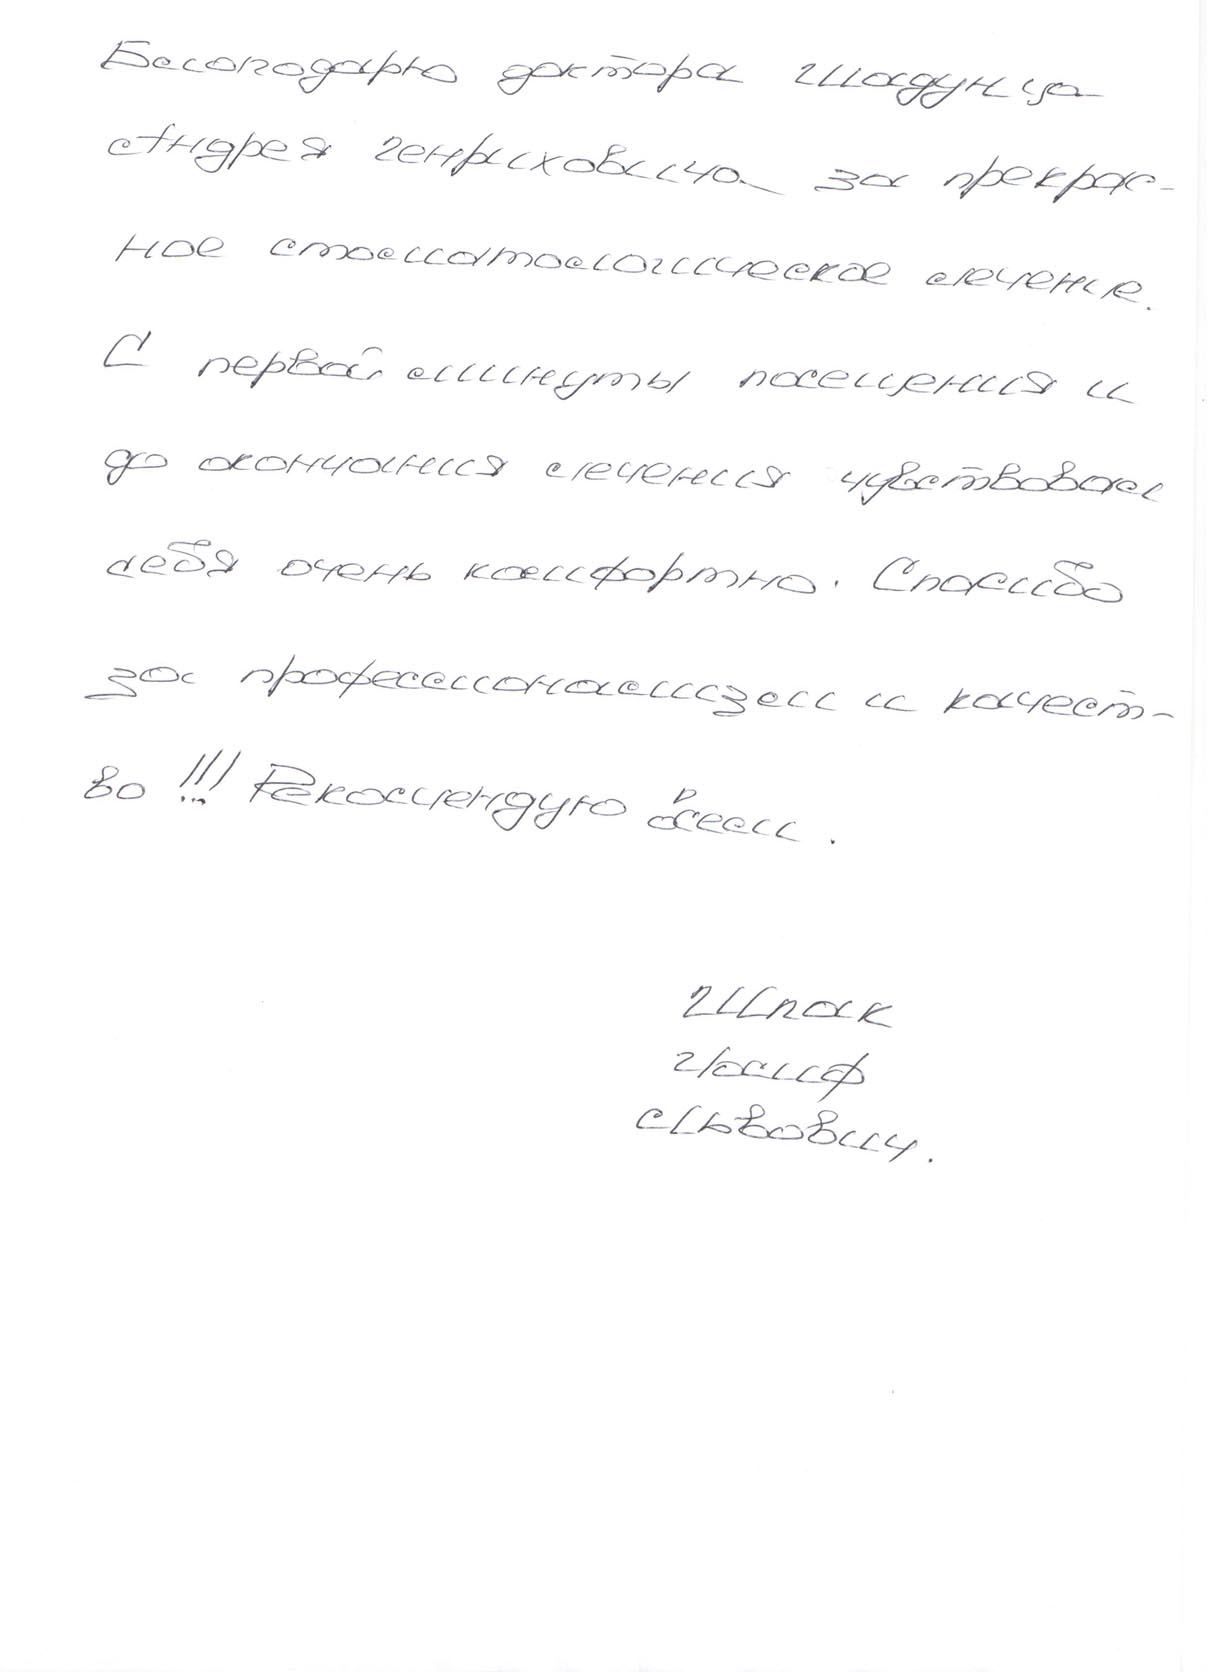 Благодарю доктора Шадунца
Андрея Генриховича за прекрас-
ное стоматологическое лечение.
С первой минуты посещения и
до окончания лечения чувствовал
себя очень комфортно. Спасибо
за професионализм и качест-
во!!! Рекомендую всем.
Шпак
Иосиф
Львович.